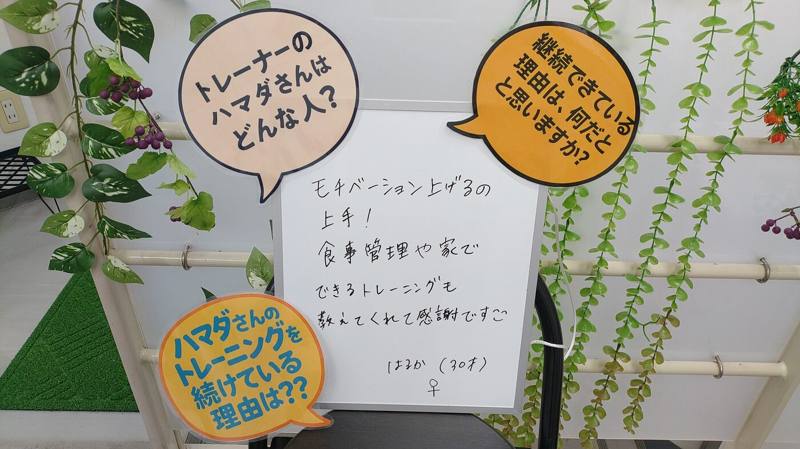 トレーナーの
ハマダさんは
どんな人?
継続できている
理由は、何だと
と思いますか?
モチベーション上げるの
上手!
食事管理や家で
できるトレーニングも
教えてくれて感謝です
はるか (30才)
♀
ハマダさんの
トレーニングを
続けている
理由は??